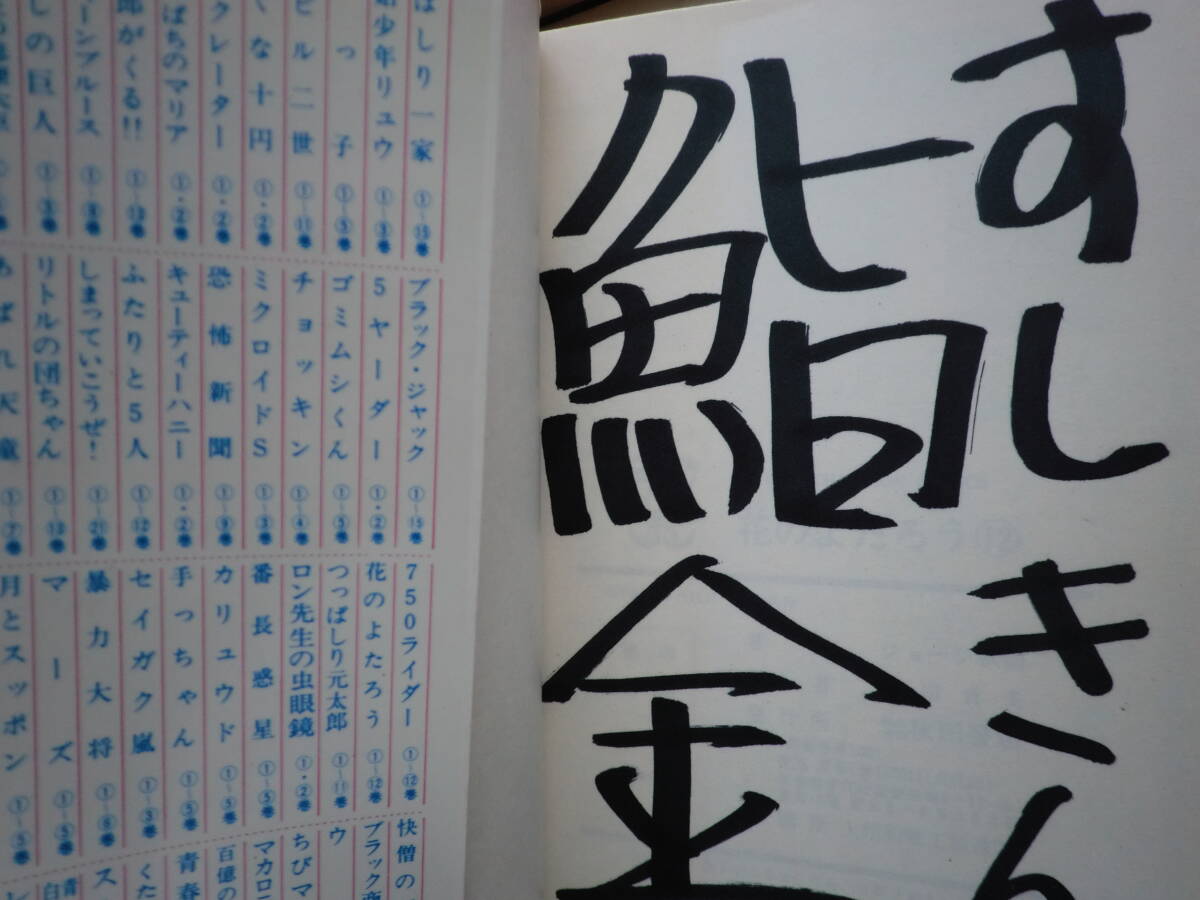 すしきん
鮨金
ばしり一家 ①〜⑮巻
少年リュウ ①〜③巻
っ子 ①〜⑤巻
ビル二世 ①〜⑪巻
な十円 ①・②巻
クレーター ①・②巻
ぱちのマリア ①・②巻
郎がくる!! ①〜⑬巻
ーンブルース ①〜⑧巻
しの巨人 ①〜③巻
ブラック・ジャック ①〜⑮巻
5ヤーダー ①・②巻
ゴミムシくん ①〜⑤巻
チョッキン ①〜④巻
ミクロイドS ①〜③巻
恐怖新聞 ①〜⑨巻
キューティーハニー ①・②巻
ふたりと5人 ①〜⑫巻
しまっていこうぜ! ①〜㉑巻
リトルの団ちゃん ①〜⑬巻
あばれ天童 ①〜⑦巻
750ライダー ①〜⑫巻
花のよたろう ①〜⑫巻
つっぱしり元太郎 ①〜⑪巻
ロン先生の虫眼鏡 ①・②巻
番長惑星 ①〜⑤巻
カリュウド ①〜⑤巻
手っちゃん ①〜⑤巻
セイガク嵐 ①〜③巻
暴力大将 ①〜⑧巻
マーズ ①〜⑤巻
月とスッポン ①〜⑤
快僧の
ブラック商
ウ
ちびマ
マカロニ
百億の
青春
くた
ス